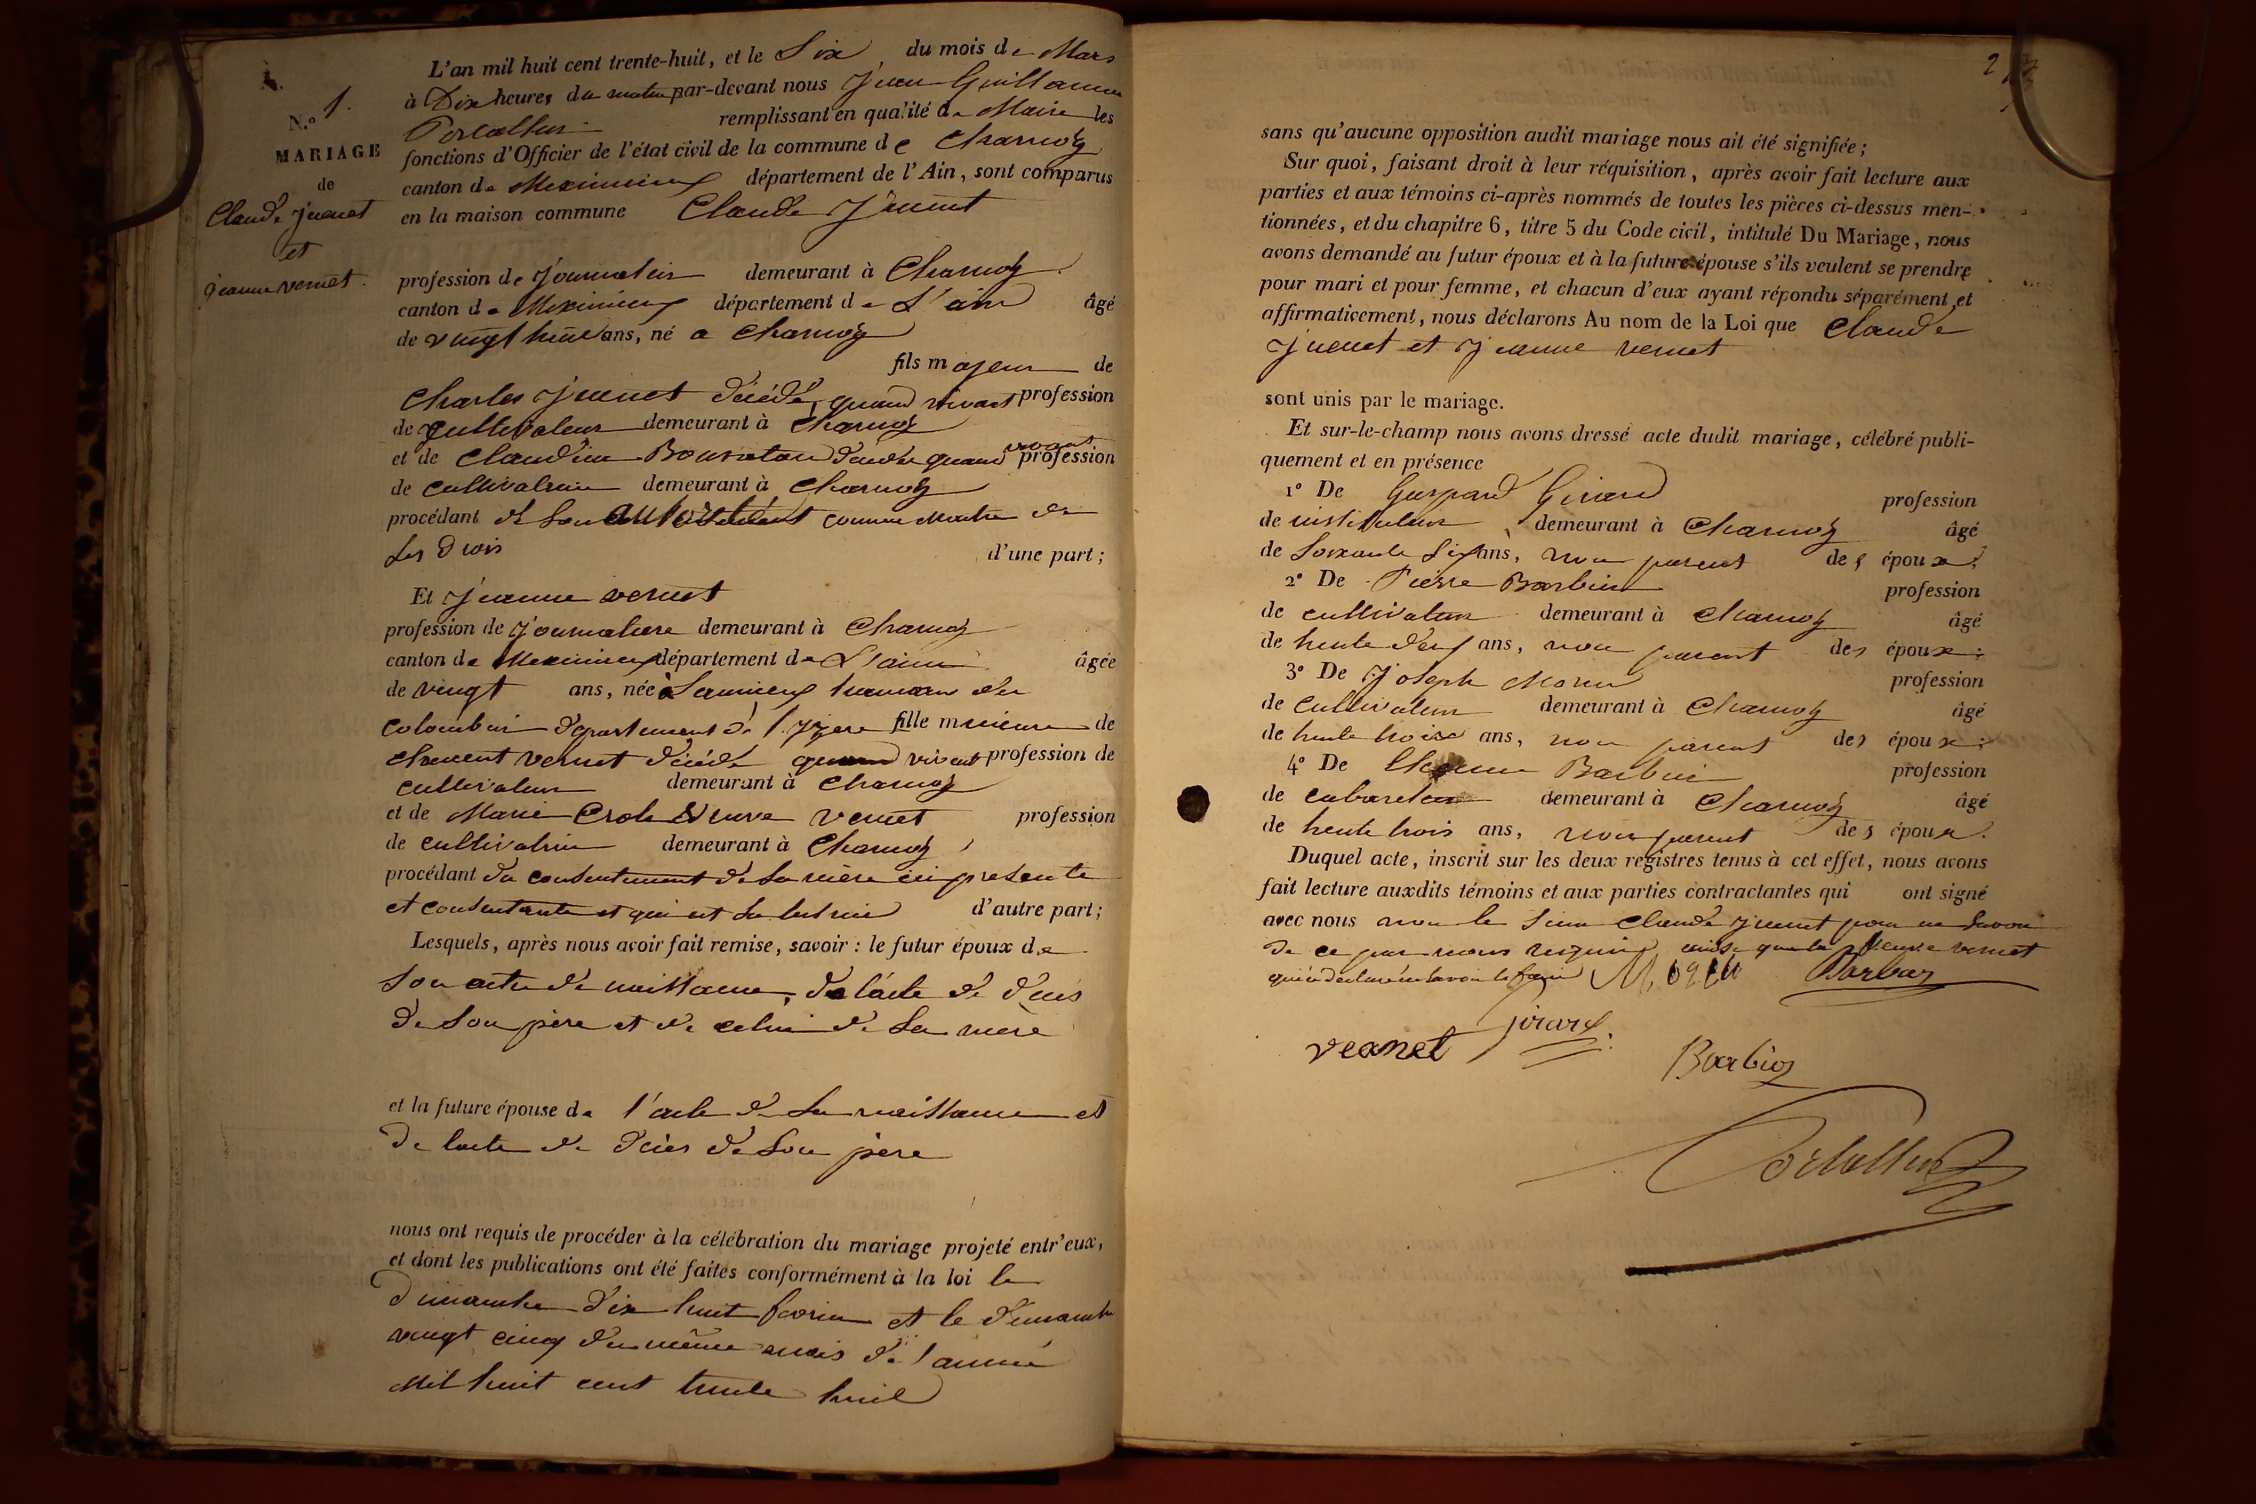 N.º 1.
MARIAGE
de
Claude Juenet
et
jeanne vernet.
L'an mil huit cent trente-huit, et le Six du mois de Mars
à Dix heures du matin par-devant nous Jean Guillaume
remplissant en qualité de Maire les
fonctions d'Officier de l'état civil de la commune de Charnoz
canton de Meximieux département de l'Ain, sont comparus
en la maison commune Claude Juenet
profession de journalier demeurant à Charnoz
canton de Meximieux département de L'ain âgé
de vingt huit ans, né a charnoz
fils majeur de
Charles Juenet décédé, quand vivant profession
de cultivateur demeurant à Charnoz
et de Claudine décédée quand vivant profession
de cultivatrice demeurant à Charnoz
procédant de son comme Maitre de
ses drois d'une part;
Et Jeanne vernet
profession de journaliere demeurant à Charnoz
canton de Meximieux département de L'ain âgée
de vingt ans, née à
département de l'yzere fille mineure de
vernet décédé quand vivant profession de
cultivateur demeurant à Charnoz
et de Marie veuve vernet profession
de cultivatrice demeurant à Charnoz
procédant du consentement de sa mère ici presente
et consentante et qui est sa tutrice d'autre part;
Lesquels, après nous avoir fait remise, savoir : le futur époux de
son acte de naissance, de l'acte de décès
de son père et de celui de sa mère
et la future épouse de l'acte de sa naissance et
de lacte de décès de son père
nous ont requis de procéder à la célébration du mariage projeté entr'eux,
et dont les publications ont été faites conformément à la loi le
dimanche dix huit fevrier et le dimanche
vingt cinq du même mois de l'année
mil huit cent trente huit
2
sans qu'aucune opposition audit mariage nous ait été signifiée;
Sur quoi, faisant droit à leur réquisition, après avoir fait lecture aux
parties et aux témoins ci-après nommés de toutes les pièces ci-dessus men-
tionnées, et du chapitre 6, titre 5 du Code civil, intitulé Du Mariage, nous
avons demandé au futur époux et à la future épouse s'ils veulent se prendre
pour mari et pour femme, et chacun d'eux ayant répondu séparément et
affirmativement, nous déclarons Au nom de la Loi que Claude
Juenet et Jeanne vernet
sont unis par le mariage.
Et sur-le-champ nous avons dressé acte dudit mariage, célébré publi-
quement et en présence
1º De Gaspard Girard profession
de instituteur demeurant à Charnoz âgé
de soixante six ans, non parent des époux;
2º De Pierre Barbier profession
de cultivateur demeurant à Charnoz âgé
de trente deux ans, non parent des époux;
3º De Joseph Morin profession
de Cultivateur demeurant à Charnoz âgé
de trente trois ans, non parent des époux;
4º De Barbier profession
de cabaretier demeurant à Charnoz âgé
de trente trois ans, non parent des époux.
Duquel acte, inscrit sur les deux registres tenus à cet effet, nous avons
fait lecture auxdits témoins et aux parties contractantes qui ont signé
avec nous non le sieur Claude Juenet pour ne savoir
de ce par nous requis ainsi que la veuve vernet
qui a declaré ne savoir le faire
vernet girard